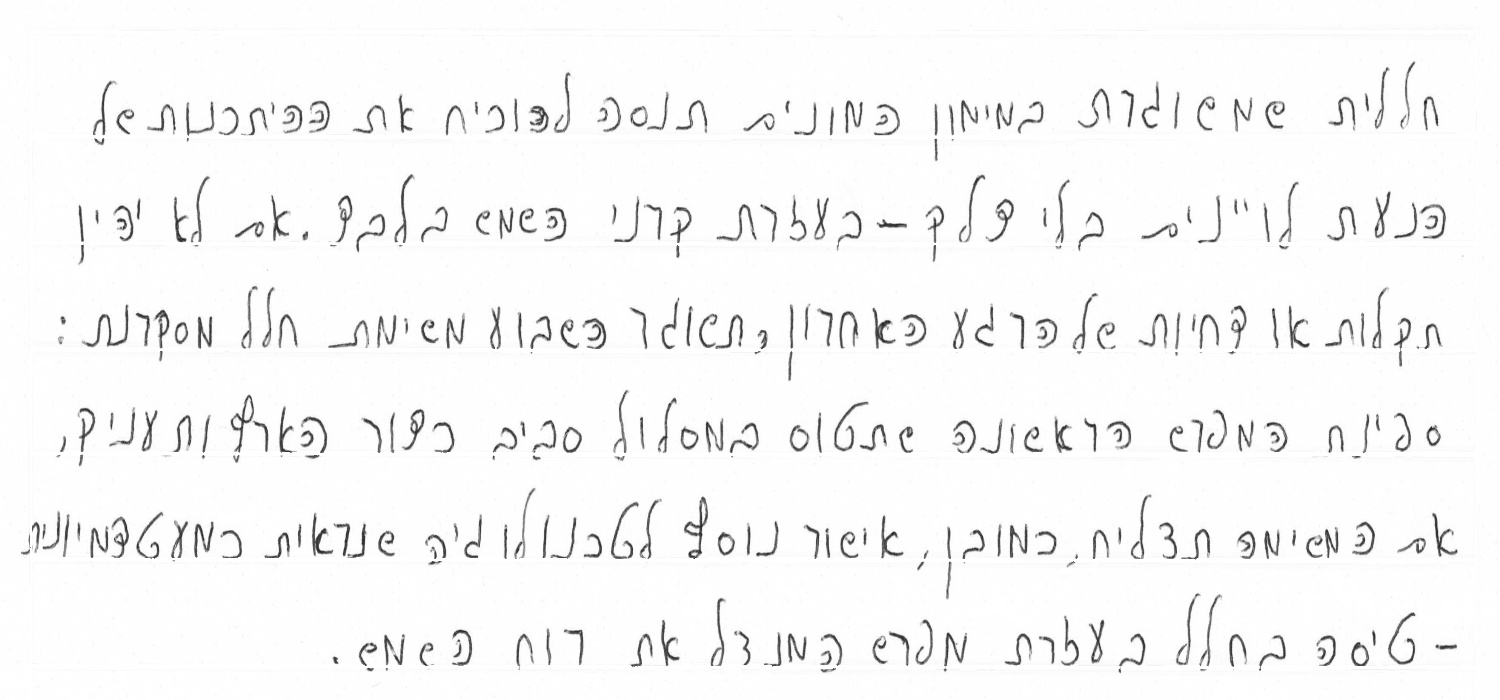 חללית שמשוגרת במימון המונים תנסה להוכיח את ההיתכנות של
הנעת לוויינים בלי דלק - בעזרת קרני השמש בלבד. אם לא יהיו
תקלות או דחיות של הרגע האחרון, תשוגר השבוע משימת חלל מסקרנת:
ספינת המפרש הראשונה שתטוס במסלול סביב כדור הארץ ותעניק,
אם המשימה תצליח, כמובן, אישור נוסף לטכנולוגיה שנראית כמעט דמיונית
- טיסה בחלל בעזרת מפרש המנצל את רוח השמש.